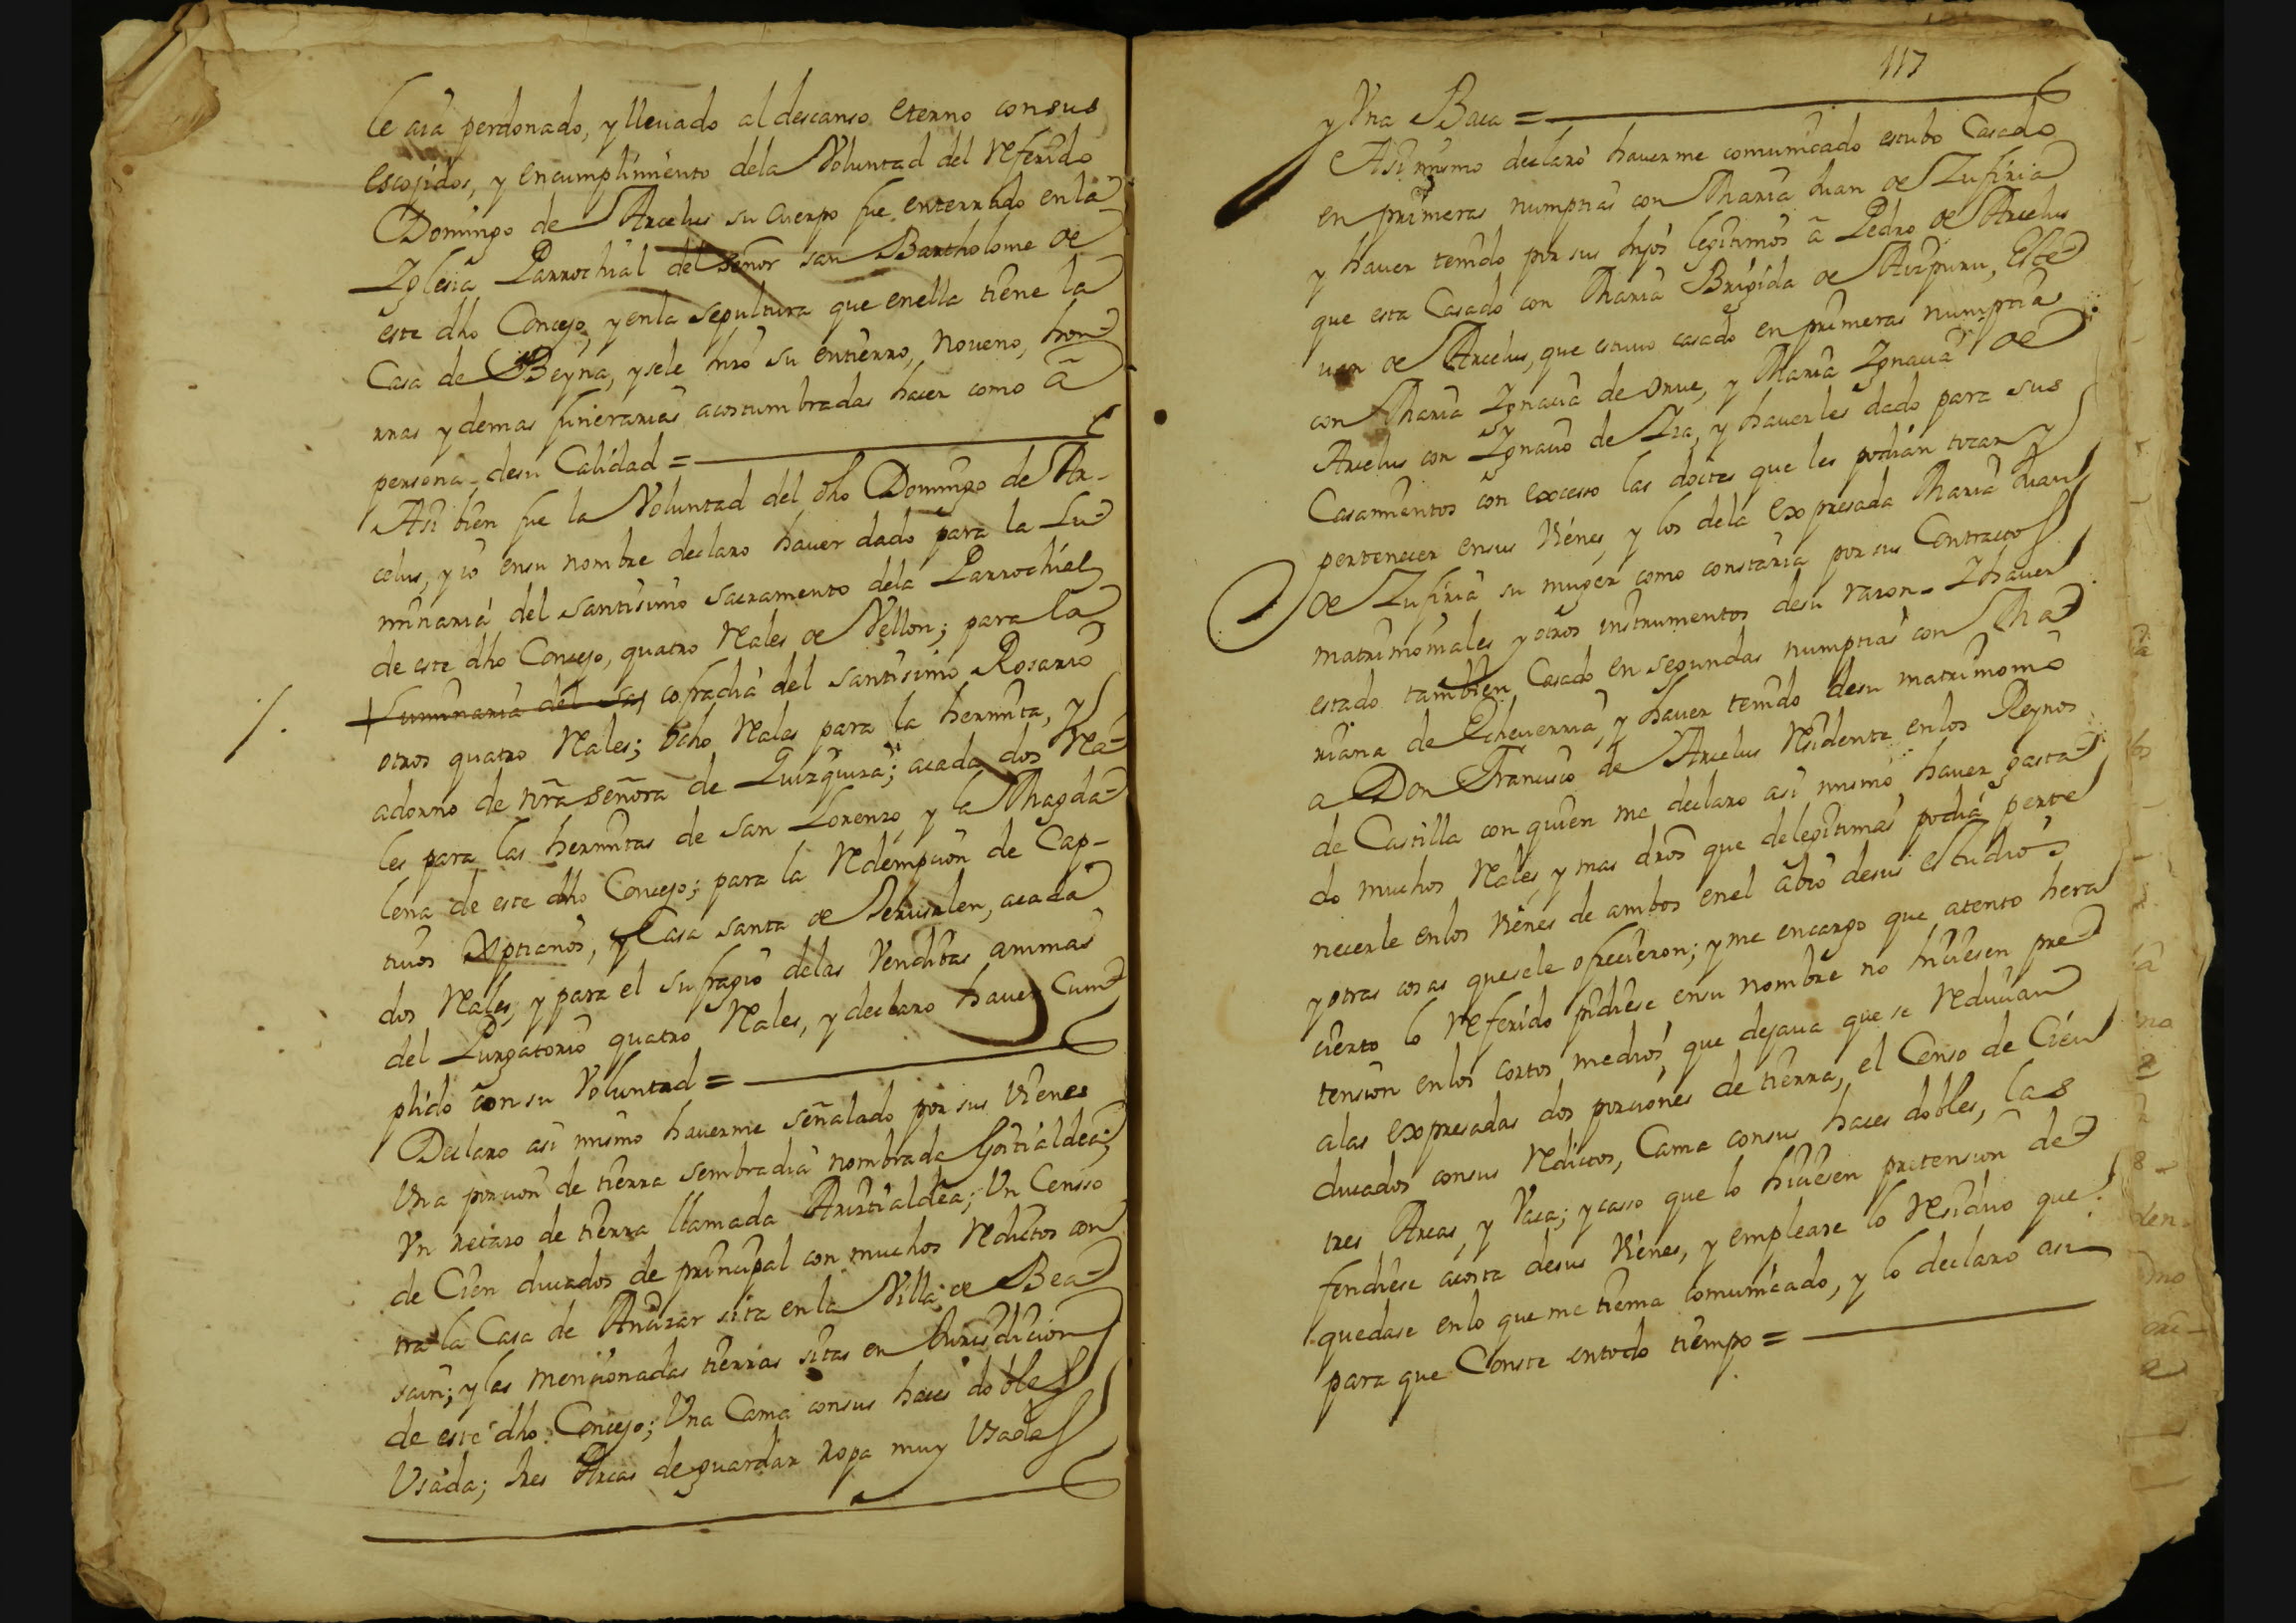 le aia perdonado, y lleuado al descanso eterno consus
escojidos, y encumplimiento dela Voluntad del referido
Domingo de Arcelus su cuerpo fue enterrado enla
Yglesia Parrochial del señor san Bartholome de
este dho Concejo, y enla sepultura que enella tiene la
Casa de Beyna, y sele hizo su entierro, noueno, hon-
rras y demas funerarias acostumbradas hacer como â
persona desu Calidad =
Asi bien fue la Voluntad del dho Domingo de Ar-
celus, y io ensu nombre declaro hauer dado para la Lu-
minaria del santisimo sacramento dela Parrochial
de este dho Concejo, quatro Reales de Vellon; para la
Luminaria del sa cofradia del santisimo Rosario
otros quatro Reales; ocho Reales para la hermita, y
adorno de nra señora de Quizquiza; acada dos Rea-
les para las hermitas de san Lorenzo y la Magda-
lena de este dho Concejo; para la Redempcion de Cap-
tiuos Xptianos, y Casa santa de Jerusalen, acada
dos Reales, y para el sufragio delas Venditas animas
del Purgatorio quatro Reales, y declaro hauer Cum-
plido con su Voluntad =
Declaro asi mismo hauerme señalado por sus Vienes
Una porcion de tierra sembradia nombrada Gortialdea;
Vn retazo de tierra llamada Ariztialdea; Un Censso
de Cien ducados de principal con muchos Reditos con
tra la Casa de Anizar sita en la Villa de Bea-
sain; y las mencionadas tierras sitas en Jurisdicion
de este dho Concejo; Una Cama consus haces dobles
Usada; tres Arcas de guardar ropa muy Usadas
117
y Vna Baca =
Asi mismo declaró hauerme comunicado estubo Casado
en primeras numptias con Maria Juan de Zufiria
y hauer tenido por sus hijos legitimos â Pedro de Arcelus
que esta Casado con Maria Brigida de Aizpuru, Este
uan de Arcelus, que estuuo casado en primeras numptias
con Maria Ygnacia de Orue, y Maria Ygnacia de
Arcelus con Ygnacio de Zia, y hauerles dado para sus
Casamientos con excesso las dotes que les podian tocar y
pertenecer ensus Vienes, y los dela expresada Maria Juan
de Zufiria su muger como constaria por sus Contractos
matrimoniales y otros instrumentos desu razon - Y hauer
estado tambien Casado en segundas numptias con Ma-
riana de Echeverria, y hauer tenido desu matrimonio
a Don Francisco de Arcelus Residente enlos Reynos
de Castilla con quien me declaro asi mismo hauer gasta
do muchos Reales, y mas dros que delegitimas podia perte
necerle enlos Vienes de ambos enel abio desus estudios
y otras cosas quesele ofrecieron; y me encargo que atento hera
cierto lo referido pidiese ensu nombre no hiciesen pre-
tension enlos cortos medios, que dejaua que se Reducian
alas expresadas dos porciones de tierra, el Censo de Cien
ducados consus Reditos, Cama consus haces dobles, las
tres Arcas, y Vaca; y casso que lo hiciesen pretension de-
fendiese acosta desus Vienes, y emplease lo Residuo que
quedase enlo que me tiema comunicado, y lo declaro asi
para que Conste entodo tiempo =